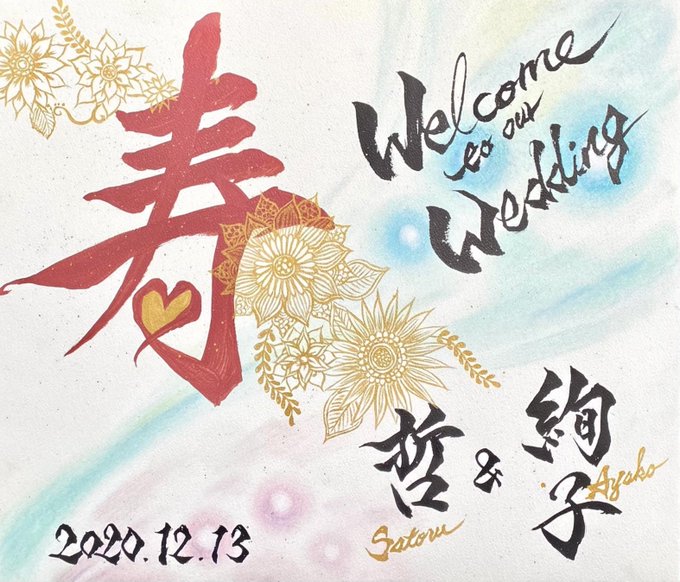 寿
Welcome
to our
Wedding
哲 & 絢子
Satoru Ayako
2020.12.13